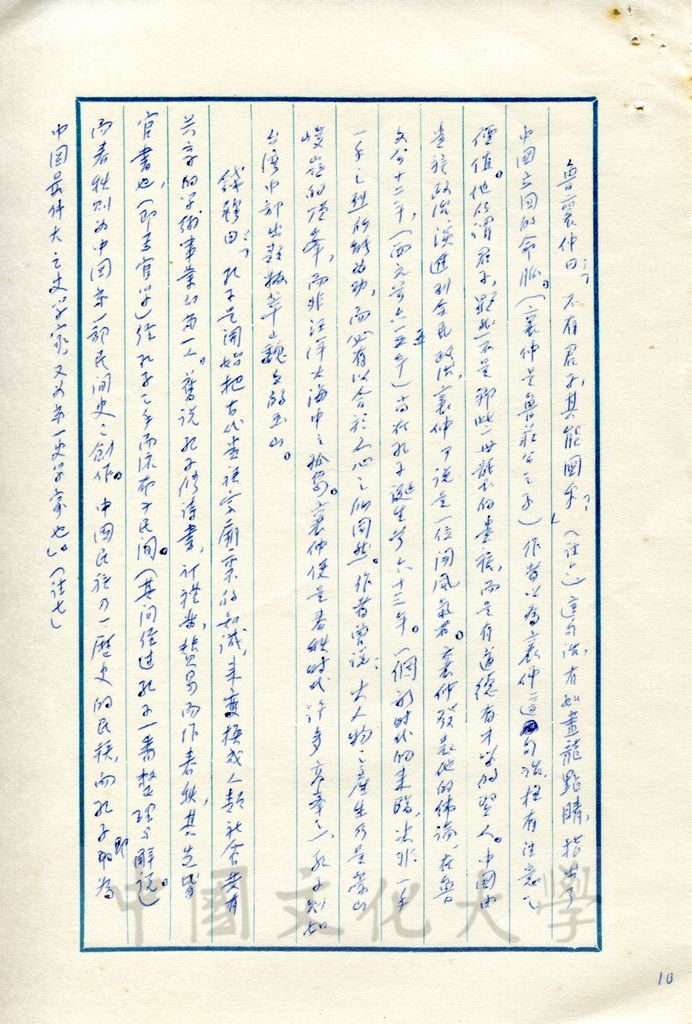 魯襄仲曰：「不有君子，其能國乎？」（註六）這句話，有如畫龍點睛，指出了
中國立國的命脈。（襄仲是魯莊公之子）作者以為襄仲這句話，極有注意之
價值。他所謂君子，雖然不是鄙此世襲的貴族，而是有道德有才學的賢人。中國由
貴族政治，演進到全民政治，襄仲可說是一位開風氣者。襄仲發表他的偉論，在魯
文公十二年，（西元前六一五年）尚在孔子誕生前六十三年。一個新時代的來臨，決非一手
一足之烈所能為功，而必有以合於人心之所同然。作者曾說：大人物之產生乃是叢山
峻嶺的確峯，而非汪洋大海中之孤島。襄仲便是春秋時代許多高峯之一，孔子則如
台灣中部出類拔萃巍巍的玉山。
錢穆曰：「孔子是開始把古代貴族宗廟裏的知識，來變換成人類社會共有
共享的學術事業的第一人。舊說孔子修詩書，訂禮樂，贊易而作春秋，其先皆
官書也，（即王官學）經孔子之手而流布于民間。（其間經過孔子一番整理與解說）
而春秋則為中國第一部民間史之創作。中國民族乃一歷史的民族，而孔子即為
中國最偉大之史學家，又為第一史學家也」。（註七）
中國文化大學
10